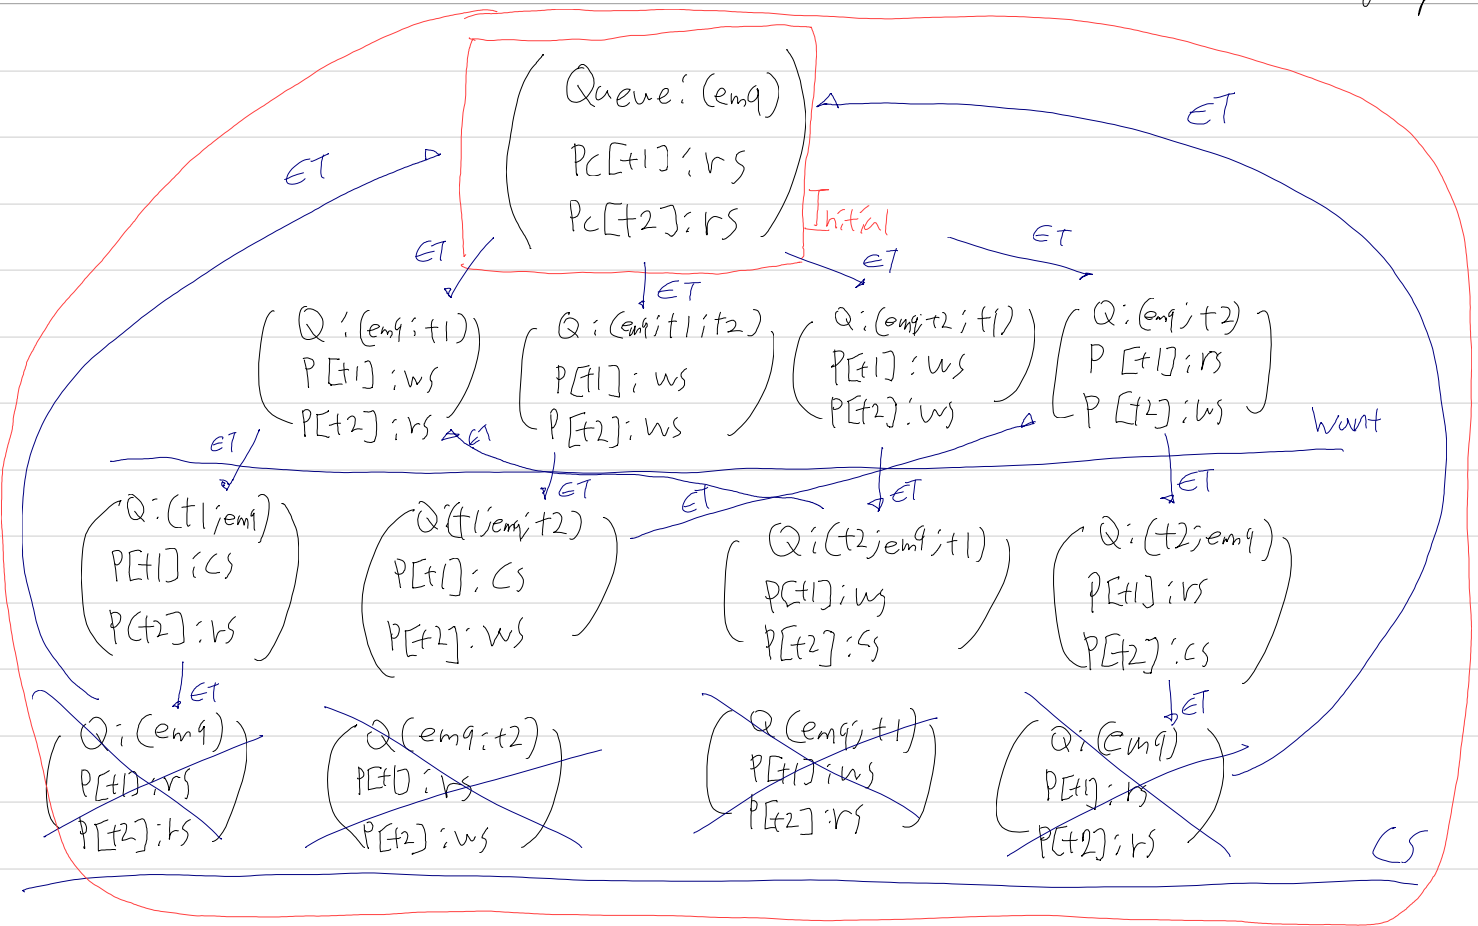 Queue:(emq)
Pc[t1]:rs
Pc[t2]:rs
Initial
ET
ET
ET
ET
ET
ET
Q:(emq;t1)
P[t1]:ws
P[t2]:rs
Q:(emq;t1;t2)
P[t1]:ws
P[t2]:ws
Q:(emq;t2;t1)
P[t1]:ws
P[t2]:ws
Q:(emq;t2)
P[t1]:rs
P[t2]:ws
want
ET
ET
ET
ET
ET
ET
Q:(t1;emq)
P[t1]:cs
P[t2]:rs
Q:(t1;emq;t2)
P[t1]:cs
P[t2]:ws
Q:(t2;emq;t1)
P[t1]:ws
P[t2]:cs
Q:(t2;emq)
P[t1]:rs
P[t2]:cs
ET
ET
Q:(emq)
P[t1]:rs
P[t2]:rs
Q(emq;t2)
P[t1]:rs
P[t2]:ws
Q(emq;t1)
P[t1]:ws
P[t2]:rs
Q:(emq)
P[t1]:rs
P[t2]:rs
CS